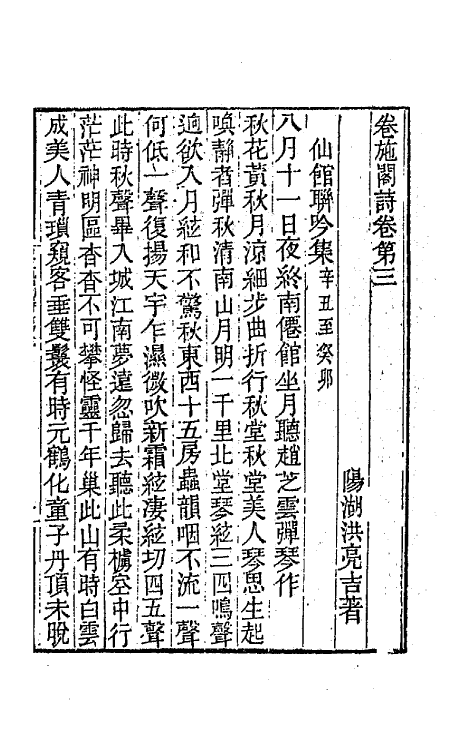 卷施閣詩卷第三
陽湖洪亮吉著
仙館聯吟集辛丑至癸卯
八月十一日夜終南僊館坐月聽趙芝雲彈琴作
秋花黃秋月涼細步曲折行秋堂秋堂美人琴思生起
喚靜者彈秋清南山月明一千里北堂琴絃三四鳴聲
迥欲入月絃和不驚秋東西十五房蟲韻咽不流一聲
何低一聲復揚天宇乍濕微吹新霜絃淒絃切四五聲
此時秋聲畢入城江南夢遠忽歸去聽此柔櫓空中行
茫茫神明區杳杳不可攀怪靈千年巢此山有時白雲
成美人青瑣窺客垂雙鬟有時元鶴化童子丹頂未脫